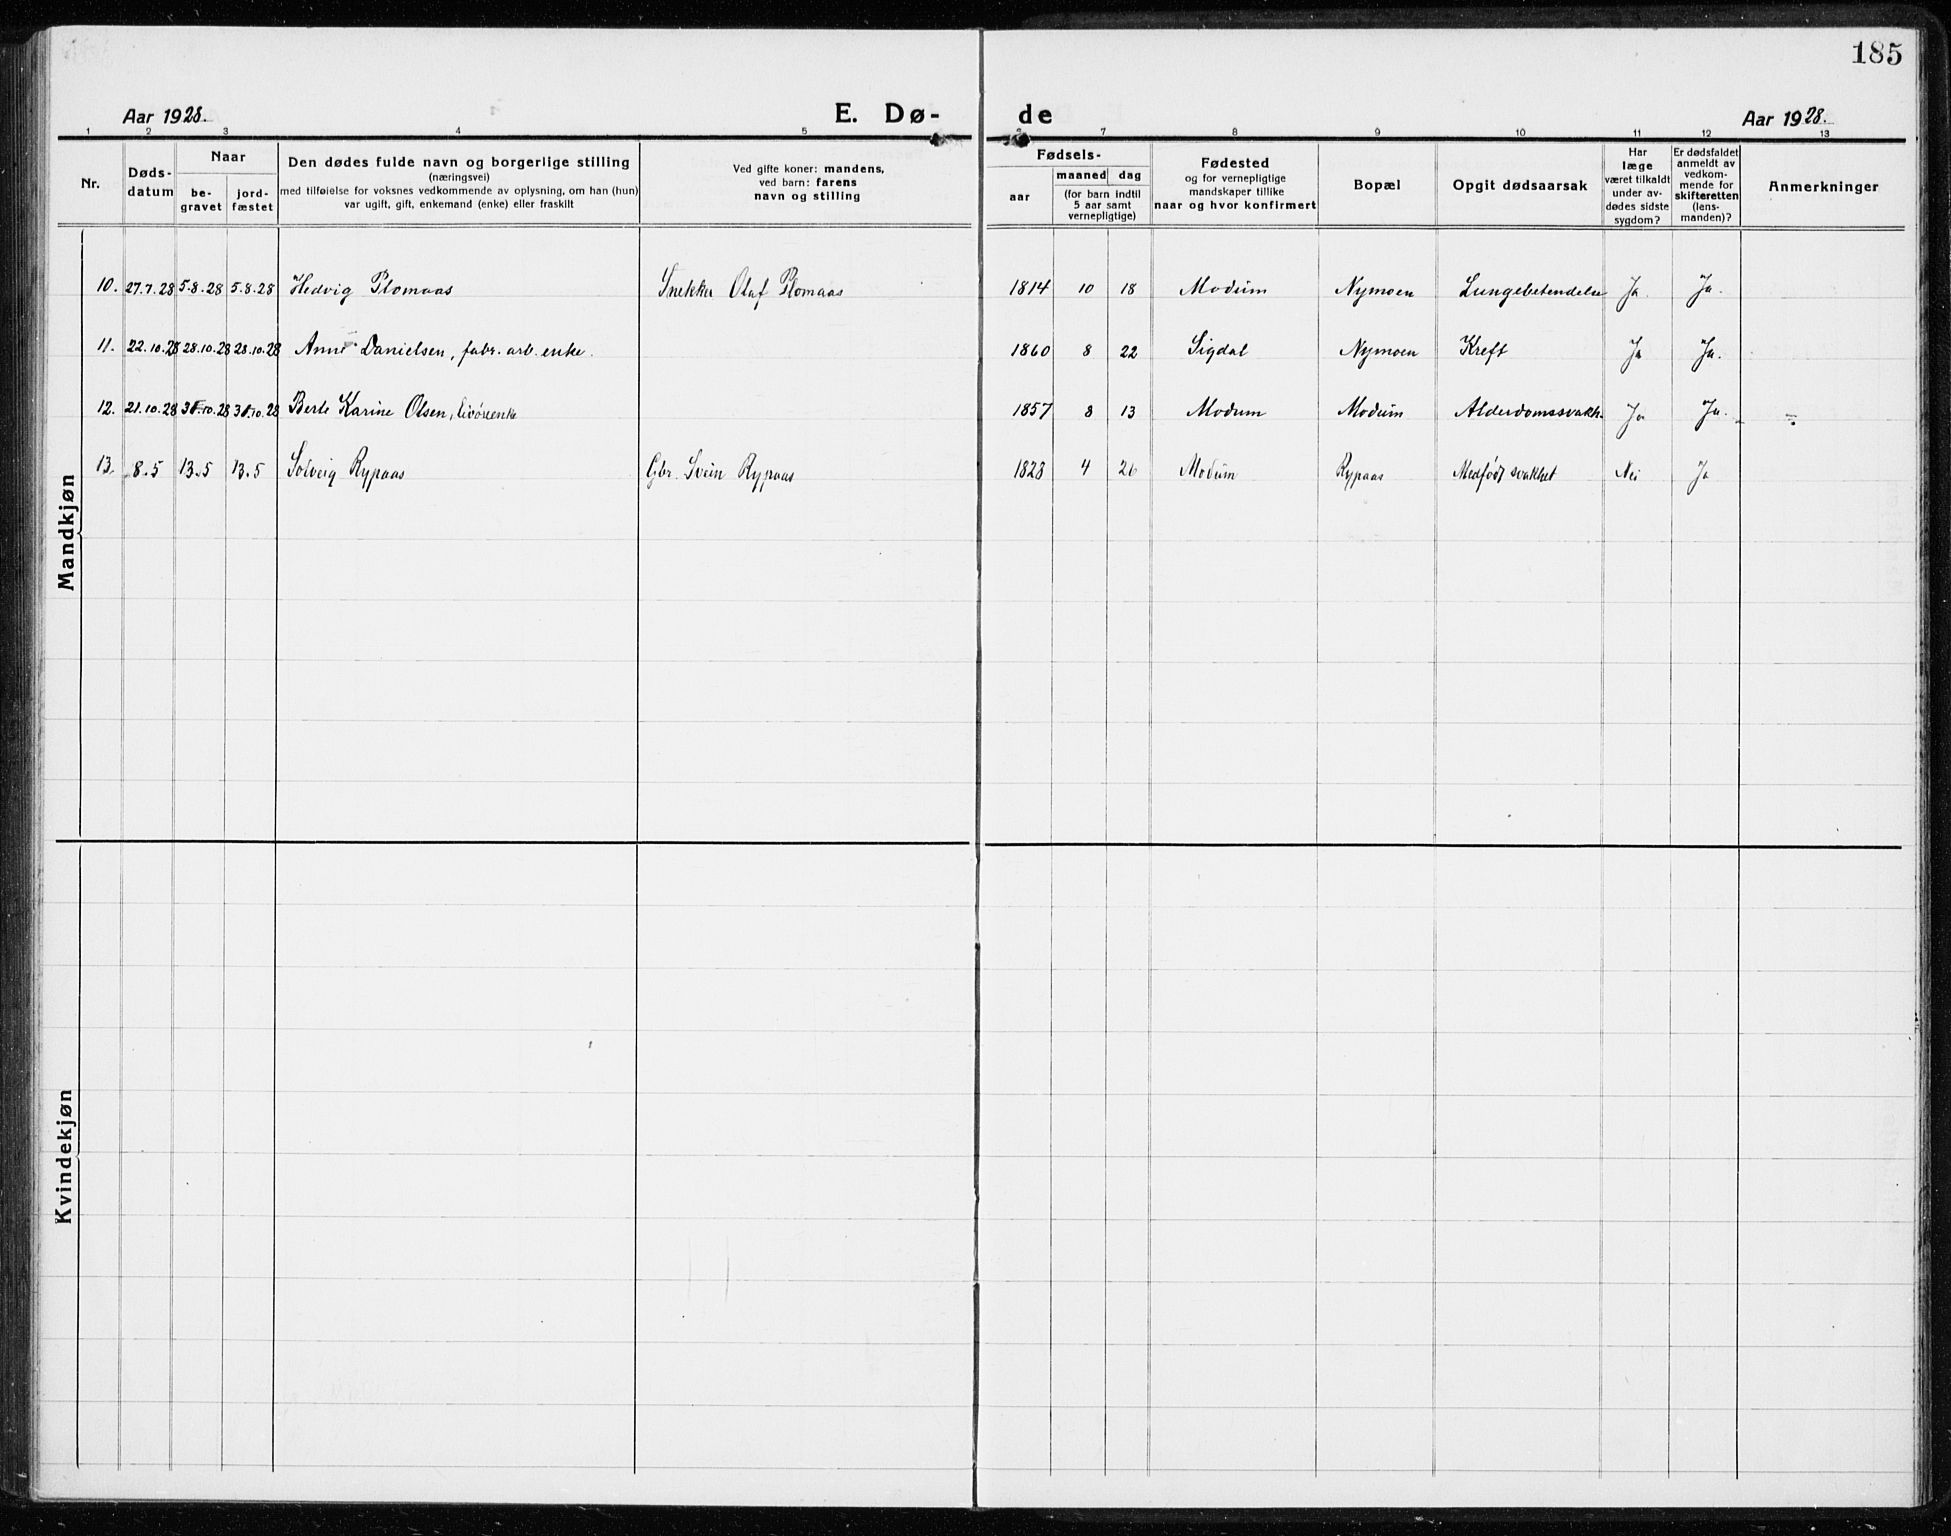 185
Aar 1928. E. Dø- de Aar 1928.
1 2 3 4 5 6 7 8 9 10 11 12 13
Nr.
Døds-
datum
Naar
be-
gravet
jord-
fæstet
Den dødes fulde navn og borgerlige stilling
(næringsvei)
med tilføielse for voksnes vedkommende av oplysning, om han (hun)
var ugift, gift, enkemand (enke) eller fraskilt
Ved gifte koner: mandens,
ved barn: farens
navn og stilling
Fødsels-
aar
maaned dag
(for barn indtil
5 aar samt
vernepligtige)
Fødested
og for vernepligtige
mandskaper tillike
naar og hvor konfirmert
Bopæl
Opgit dødsaarsak
Har
læge
været tilkaldt
under av-
dødes sidste
sygdom?
Er dødsfaldet
anmeldt av
vedkom-
mende for
skifteretten
(lens-
manden)?
Anmerkninger
Mandkjøn
10. 27.7.28 5.8.28 5.8.28 Hedvig Plomaas Snekker Olaf Plomaas 1814 10 18 Modum Nymoen Lungebetendelse Ja. Ja.
11. 22.10.28 28.10.28 28.10.28 Anne Danielsen, fabr. arb. enke. 1860 8 22 Sigdal Nymoen Kreft Ja Ja.
12. 21.10.28 31.10.28 31.10.28 Berte Karine Olsen, 1857 8 13 Modum Modum Alderdomssvakh. Ja Ja.
13. 8.5 13.5 13.5 Solveig Rypaas Gbr. Svein Rypaas 1828 4 26 Modum Rypaas Medfødt svakhet Nei Ja
Kvindekjøn